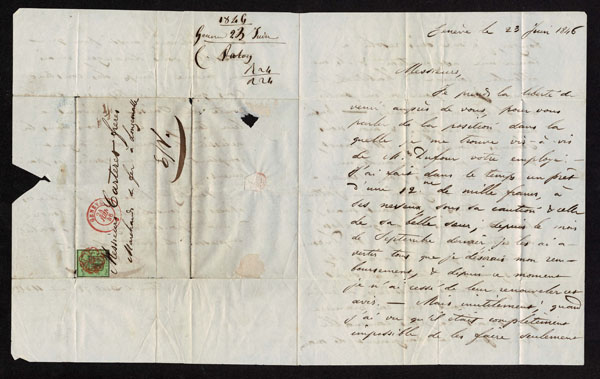 1846
Genève 23 Juin
224
224
Messieurs Carteret frères
Marchands de fer à Longemalle
E/V
Genève le 23 Juin 1846
Messieurs,
Je prends la liberté de
venir auprès de vous, pour vous
parler de la position dans la
quelle je me trouve vis-à vis
de M. Dufour votre employé. —
J'ai fait dans le temps un prêt
d'une 12ne de mille francs, à
ses neveux sous sa caution & celle
de sa belle sœur, depuis le mois
de Septembre dernier je les ai a-
vertis tous que je désirais mon rem-
boursement, & depuis ce moment
je n'ai cessé de leur renouveler cet
avis. — Mais inutilement; quand
j'ai vu qu'il était complètement
impossible de les faire seulement